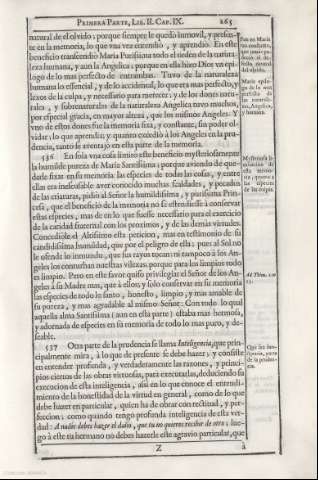 PRIMERA PARTE, LIB. II. CAP. IX. 265
natural de el olvido; porque siempre le quedò inmovil, y presente
en la memoria, lo que vna vez entendiò, y aprendiò. En este
beneficio trascendiò Maria Purissima todo el orden de la naturaleza
humana, y aun la Angelica; porque en ella hizo Dios vn epilogo
de lo mas perfecto de entrambas. Tuvo de la naturaleza
humana lo essencial, y de lo accidental, lo que era mas perfecto, y
lexos de la culpa, y necessario para merecer; y de los dones naturales,
y sobrenaturales de la naturaleza Angelica tuvo muchos,
por especial gracia, en mayor alteza, que los mismos Angeles. Y
vno de estos dones fue la memoria fixa, y constante, sin poder olvidar,
lo que aprendia; y quanto excediò à los Angeles en la prudencia,
tanto se aventajò en esta parte de la memoria.
536 En sola vna cosa limitò este beneficio mysteriosamente
la humilde pureza de Maria Santissima; porque aviendo de quedar
fixas en su memoria las especies de todas las cosas, y entre
ellas era inescusable aver conocido muchas fealdades, y pecados
de las criaturas, pidiò al Señor la humildissima, y purissima Princesa,
que el beneficio de la memoria no se estendiesse à conservar
estas especies, mas de en lo que fuesse necessario para el exercicio
de la caridad fraternal con los proximos, y de las demàs virtudes.
Concediòle el Altissimo esta peticion, mas en testimonio de su
candidissima humildad, que por el peligro de ella; pues al Sol no
le ofende lo inmundo, que sus rayos tocan; ni tampoco à los Angeles
los conturban nuestras vilezas, porque para los limpios todo
es limpio. Pero en este favor quiso privilegiar el Señor de los Angeles
à su Madre mas, que à ellos; y solo conservar en su memoria
las especies de todo lo santo, honesto, limpio, y mas amable de
su pureza, y mas agradable al mismo Señor: Con todo lo qual
aquella alma Santissima (aun en esta parte) estaba mas hermosa,
y adornada de especies en su memoria de todo lo mas puro, y deseable.
537 Otra parte de la prudencia se llama Inteligencia, que principalmente
mira, à lo que de presente se debe hazer; y consiste
en entender profunda, y verdaderamente las razones, y principios
ciertos de las obras virtuosas, para executarlas, deduciendo su
execucion de esta inteligencia, assi en lo que conoce el entendimiento
de la honestidad de la virtud en general, como de lo que
debe hazer en particular, quien ha de obrar con rectitud, y perfeccion;
como quando tengo profunda inteligencia de esta verdad:
A nadie debes hazer el daño, que tu no quieres recibir de otro; luego
à este tu hermano no debes hazerle este agravio particular, que
Z à
Mysteriosa limitacion de
esta memoria
Ad Titum. 1. v.
15.
Que sea inteligencia, parte
de la prudencia.